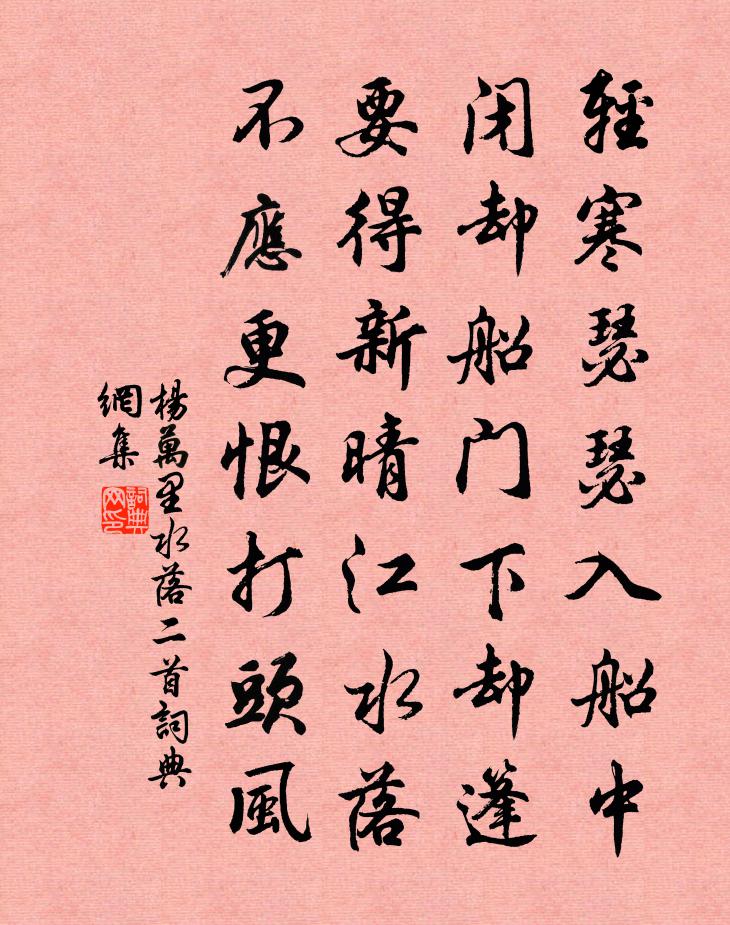 輕寒瑟瑟入船中
閉却船門下却篷
要得新晴江水落
不應更恨打頭風
楊萬里水落二首詞典
網集
詞典
网印